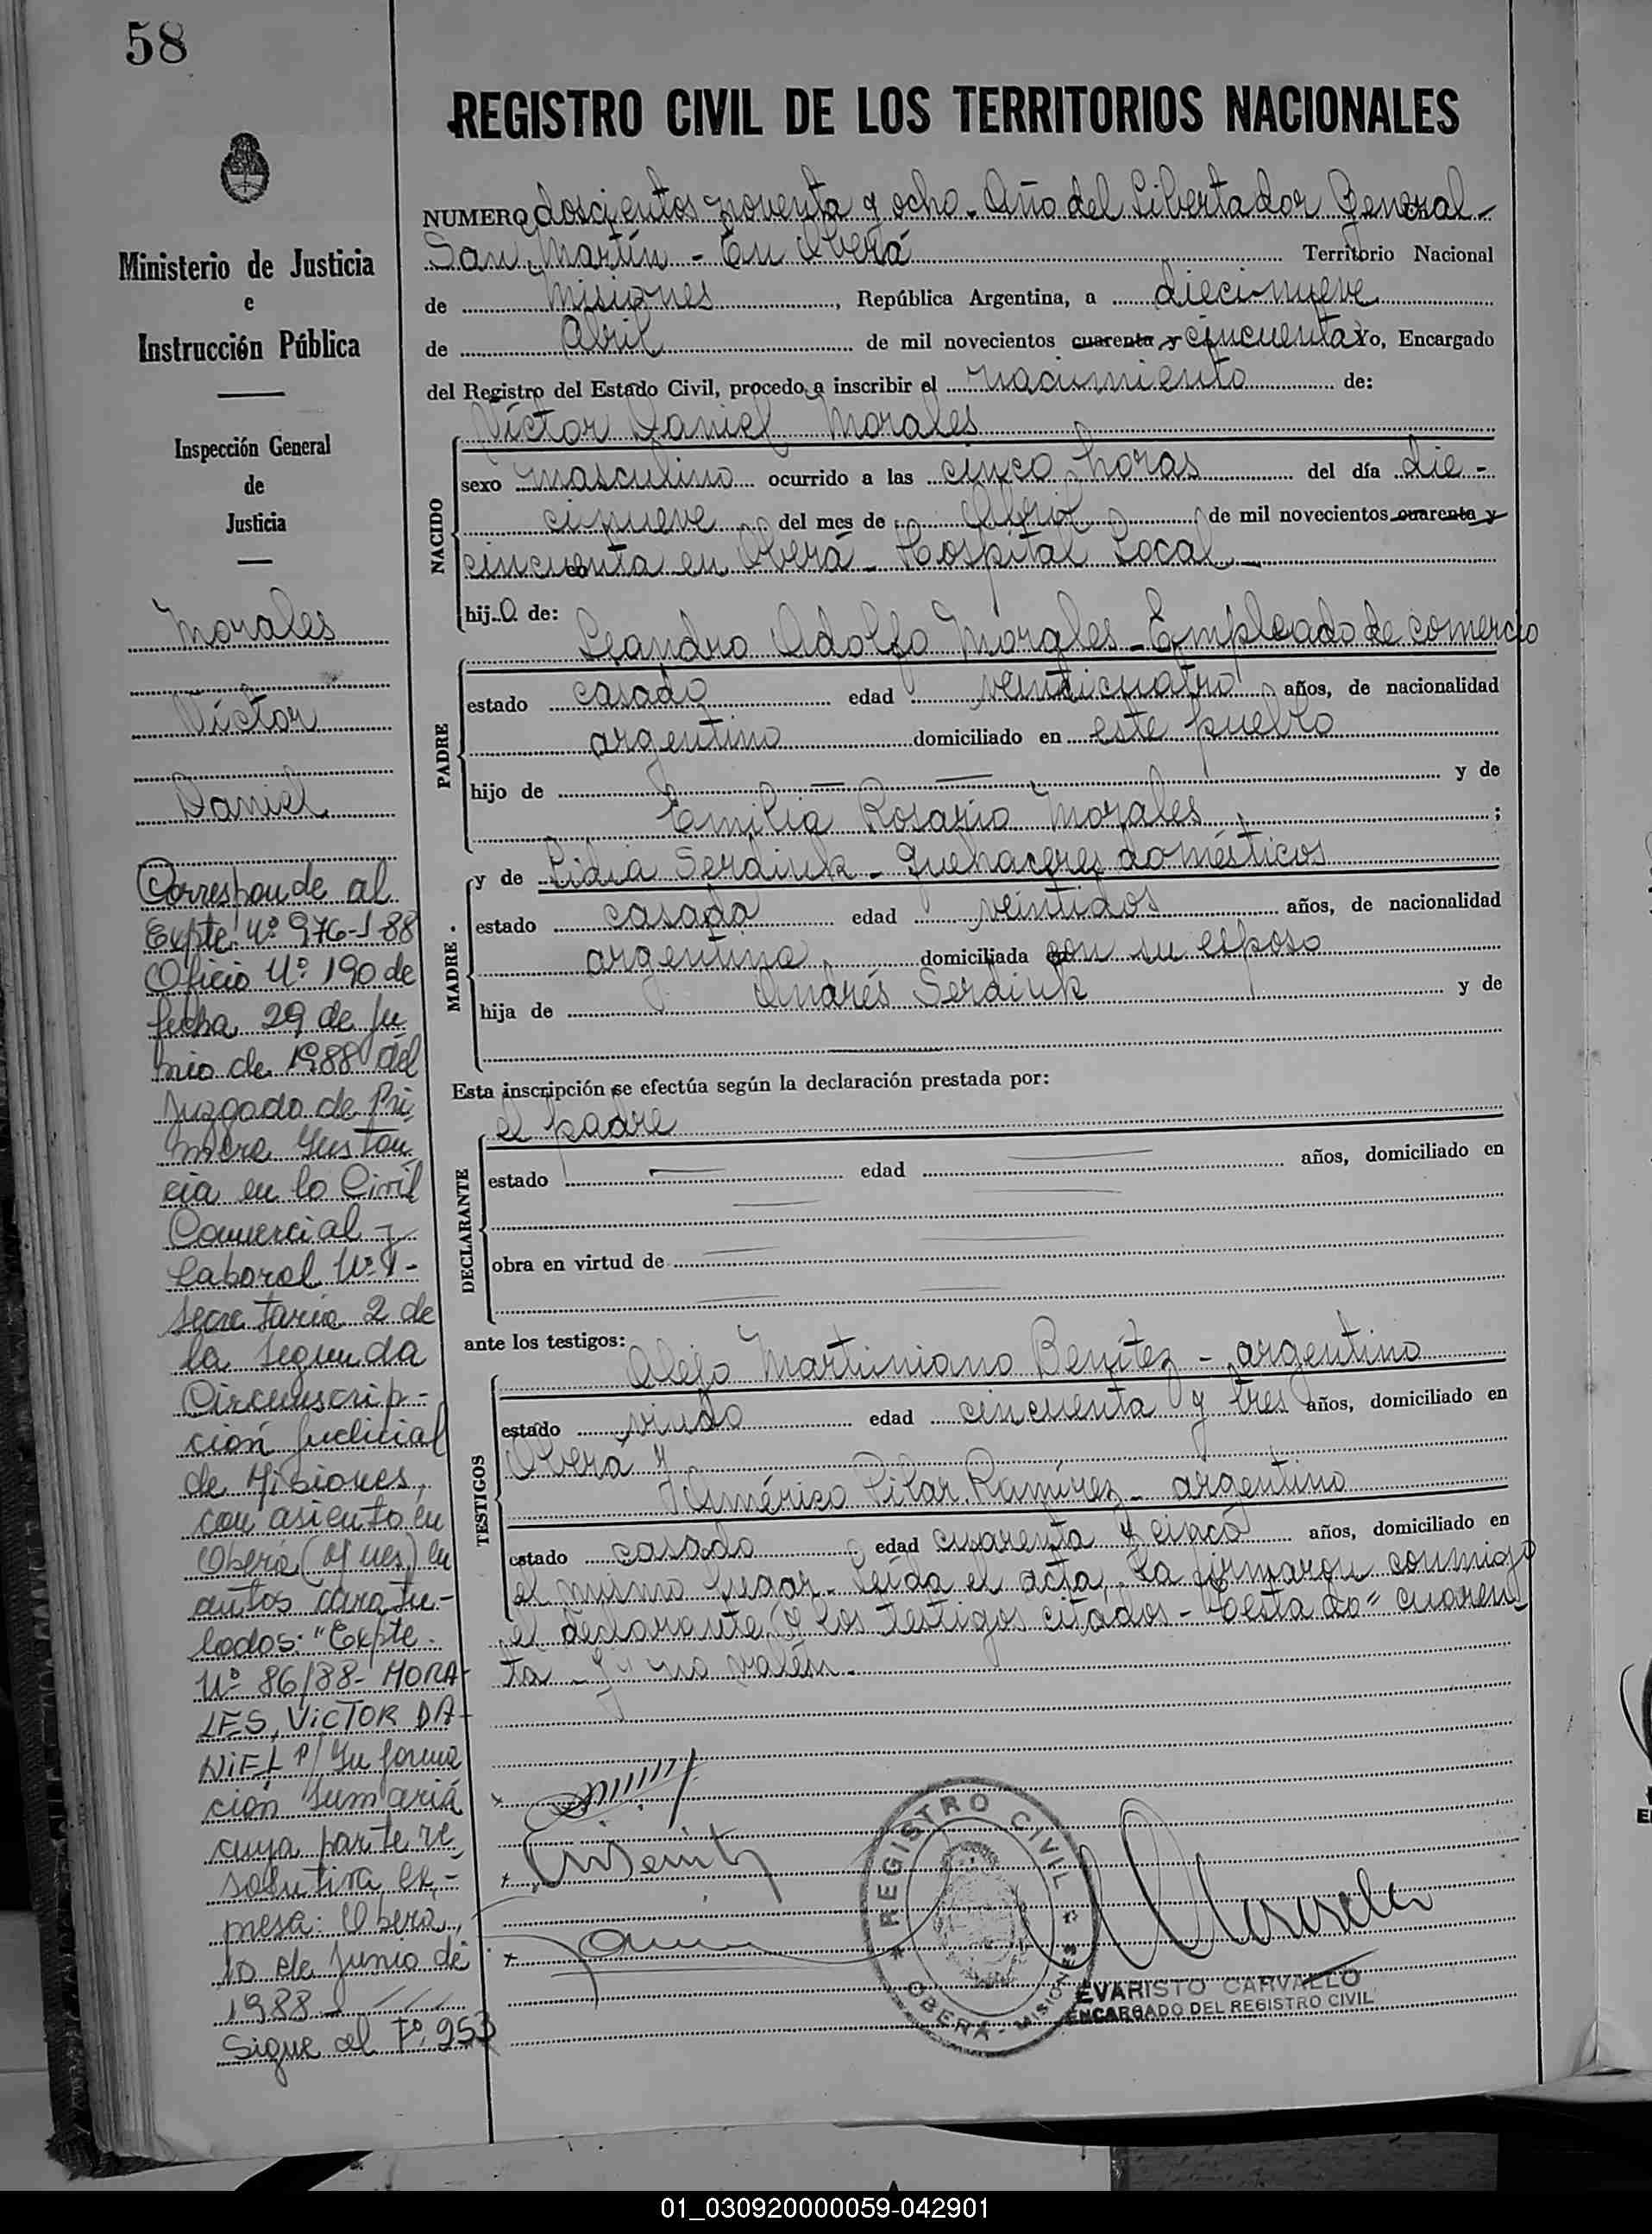 58
Ministerio de Justicia
e
Instrucción Pública
Inspección General
de
Justicia
Morales
Víctor
Daniel
Corresponde al
Expte. Nº 976-J-88
Oficio Nº 190 de
fecha 29 de Ju
nio de 1988 del
Juzgado de Pri
mera Instan
cia en lo Civil
Comercial y
Laboral Nº 1-
Secretaria 2 de
la Segunda
Circunscrip-
ción Judicial
de Misiones,
con asiento en
Oberá (Mnes) en
autos caratu-
lados: "Expte.
Nº 86/88- MORA-
LES, VICTOR DA-
NIEL p/ Informa
ción Sumaria
cuya parte re
solutiva ex-
presa: Oberá,
10 de Junio de
1988-
Sigue al Fº 253
REGISTRO CIVIL DE LOS TERRITORIOS NACIONALES
NUMERO doscientos noventa y ocho. Año del Libertador General
San Martín - En Oberá Territorio Nacional
de Misiones, República Argentina, a diecinueve
de Abril de mil novecientos cuarenta y cincuenta Yo, Encargado
del Registro del Estado Civil, procedo a inscribir el nacimiento de:
Víctor Daniel Morales
NACIDO
sexo masculino ocurrido a las cinco horas del día die-
cinueve del mes de Abril de mil novecientos cuarenta y
cincuenta en Oberá - Hospital Local
hijo de:
Leandro Adolfo Morales - Empleado de comercio
PADRE
estado casado edad veinticuatro años, de nacionalidad
argentino domiciliado en este pueblo
hijo de y de
Emilia Rosario Morales ;
y de Lidia Serdiuk - quehaceres domésticos
MADRE
estado casada edad veintidos años, de nacionalidad
argentina domiciliada con su esposo
hija de Andrés Serdiuk y de
Esta inscripción se efectúa según la declaración prestada por:
el padre
DECLARANTE
estado edad años, domiciliado en
obra en virtud de
ante los testigos:
Alejo Martiniano Benítez - argentino
TESTIGOS
estado viudo edad cincuenta y tres años, domiciliado en
Oberá y
Américo Pilar Ramírez - argentino
estado casado edad cuarenta y cinco años, domiciliado en
el mismo lugar - Leída el acta, la firmaron conmigo
el declarante y los testigos citados - Testado "cuaren
ta - y" no valen.
REGISTRO CIVIL
OBERÁ - MISIONES
EVARISTO CARVALLO
ENCARGADO DEL REGISTRO CIVIL
01_030920000059-042901